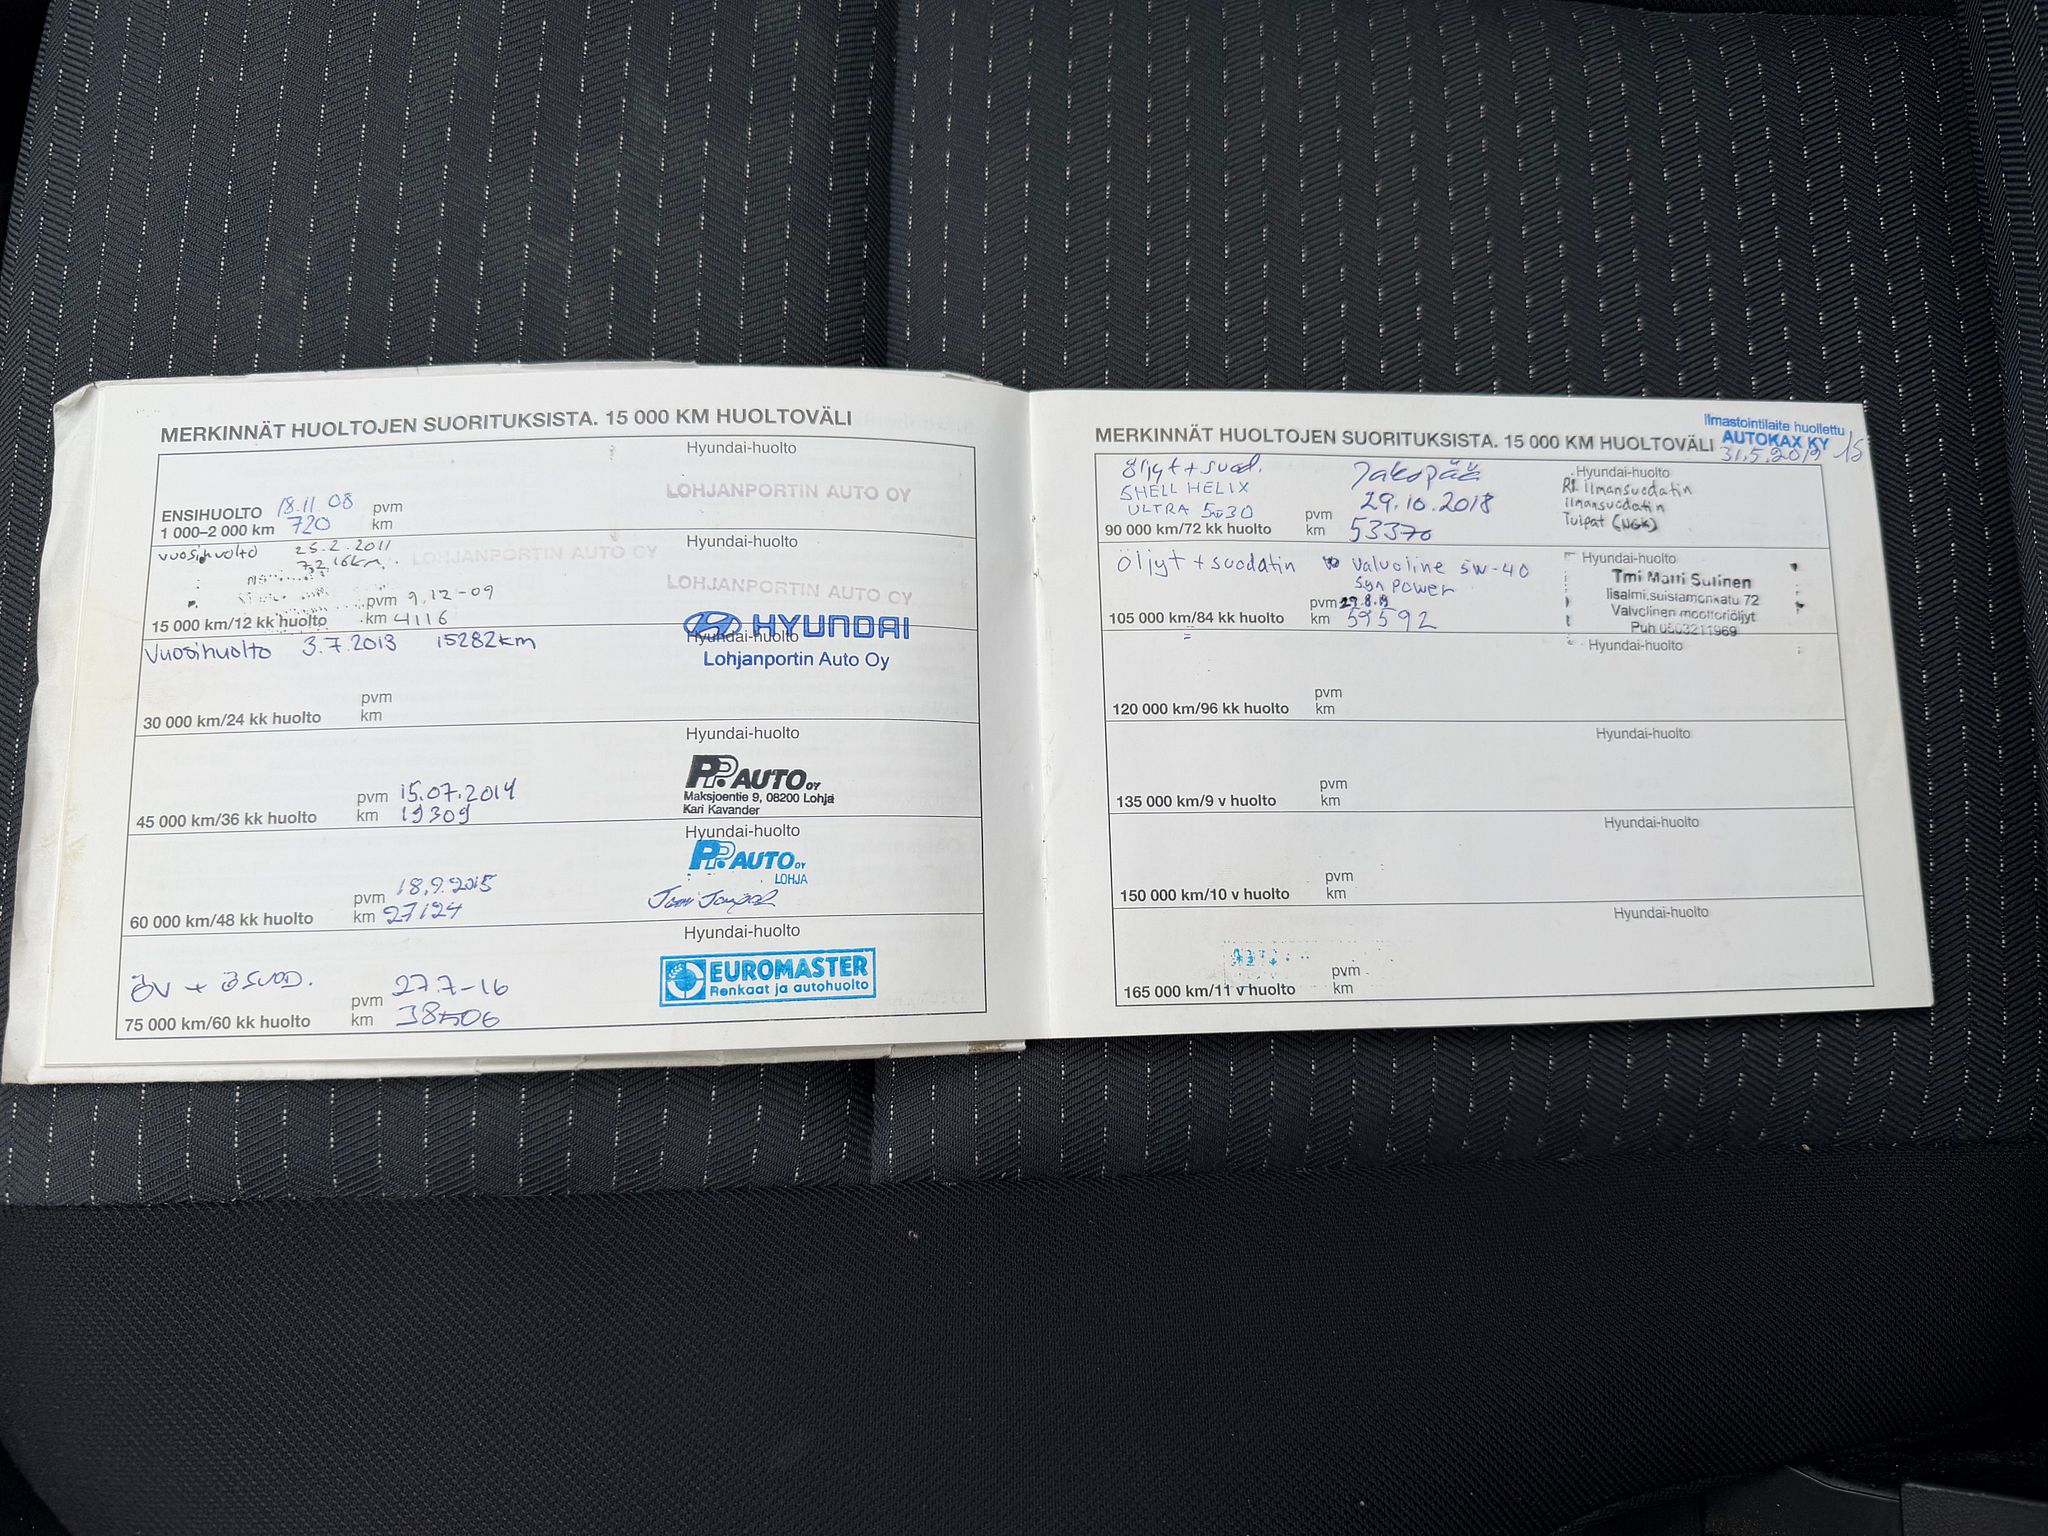 MERKINNÄT HUOLTOJEN SUORITUKSISTA. 15 000 KM HUOLTOVÄLI
Hyundai-huolto
LOHJANPORTIN AUTO OY
ENSIHUOLTO 18.11 08 pvm
1 000–2 000 km 720 km
Hyundai-huolto
vuosihuolto 25.2.2011
LOHJANPORTIN AUTO OY
LOHJANPORTIN AUTO OY
pvm 9.12-09
15 000 km/12 kk huolto km 4116
HYUNDAI
Hyundai-huolto
Vuosihuolto 3.7.2013 15282km
Lohjanportin Auto Oy
pvm
30 000 km/24 kk huolto km
Hyundai-huolto
PP AUTO OY
Maksjoentie 9, 08200 Lohja
Kari Kavander
pvm 15.07.2014
45 000 km/36 kk huolto km 19309
Hyundai-huolto
PP AUTO OY
LOHJA
pvm 18.9.2015
60 000 km/48 kk huolto km 27124
Hyundai-huolto
EUROMASTER
Renkaat ja autohuolto
ÖV + ÖSUOD.
pvm 27.7-16
75 000 km/60 kk huolto km 38506
Ilmastointilaite huollettu
AUTOKAX KY
31.5.2019
MERKINNÄT HUOLTOJEN SUORITUKSISTA. 15 000 KM HUOLTOVÄLI
Hyundai-huolto
öljyt + suod.
SHELL HELIX
ULTRA 5w30
Jakopää
Rt ilmansuodatin
ilmansuodatin
Tulpat (NGK)
pvm 29.10.2018
90 000 km/72 kk huolto km 53370
Hyundai-huolto
öljyt + suodatin Valvoline 5W-40
Syn Power
Tmi Matti Sutinen
Iisalmi.suistamonkatu 72
Valvolinen moottoriöljyt
Puh 0503211969
pvm 29.8.19
105 000 km/84 kk huolto km 59592
Hyundai-huolto
pvm
120 000 km/96 kk huolto km
Hyundai-huolto
pvm
135 000 km/9 v huolto km
Hyundai-huolto
pvm
150 000 km/10 v huolto km
Hyundai-huolto
pvm
165 000 km/11 v huolto km